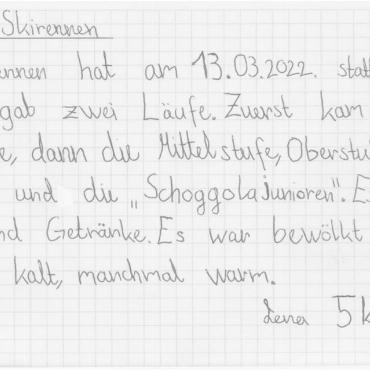 Skirennen
ennen hat am 13.03.2022. stat
gab zwei Läufe. Zuerst kam
e, dann die Mittelstufe, Oberstu
und die „Schoggolajunioren". E
nd Getränke. Es war bewölkt
kalt, manchmal warm.
Lena 5k